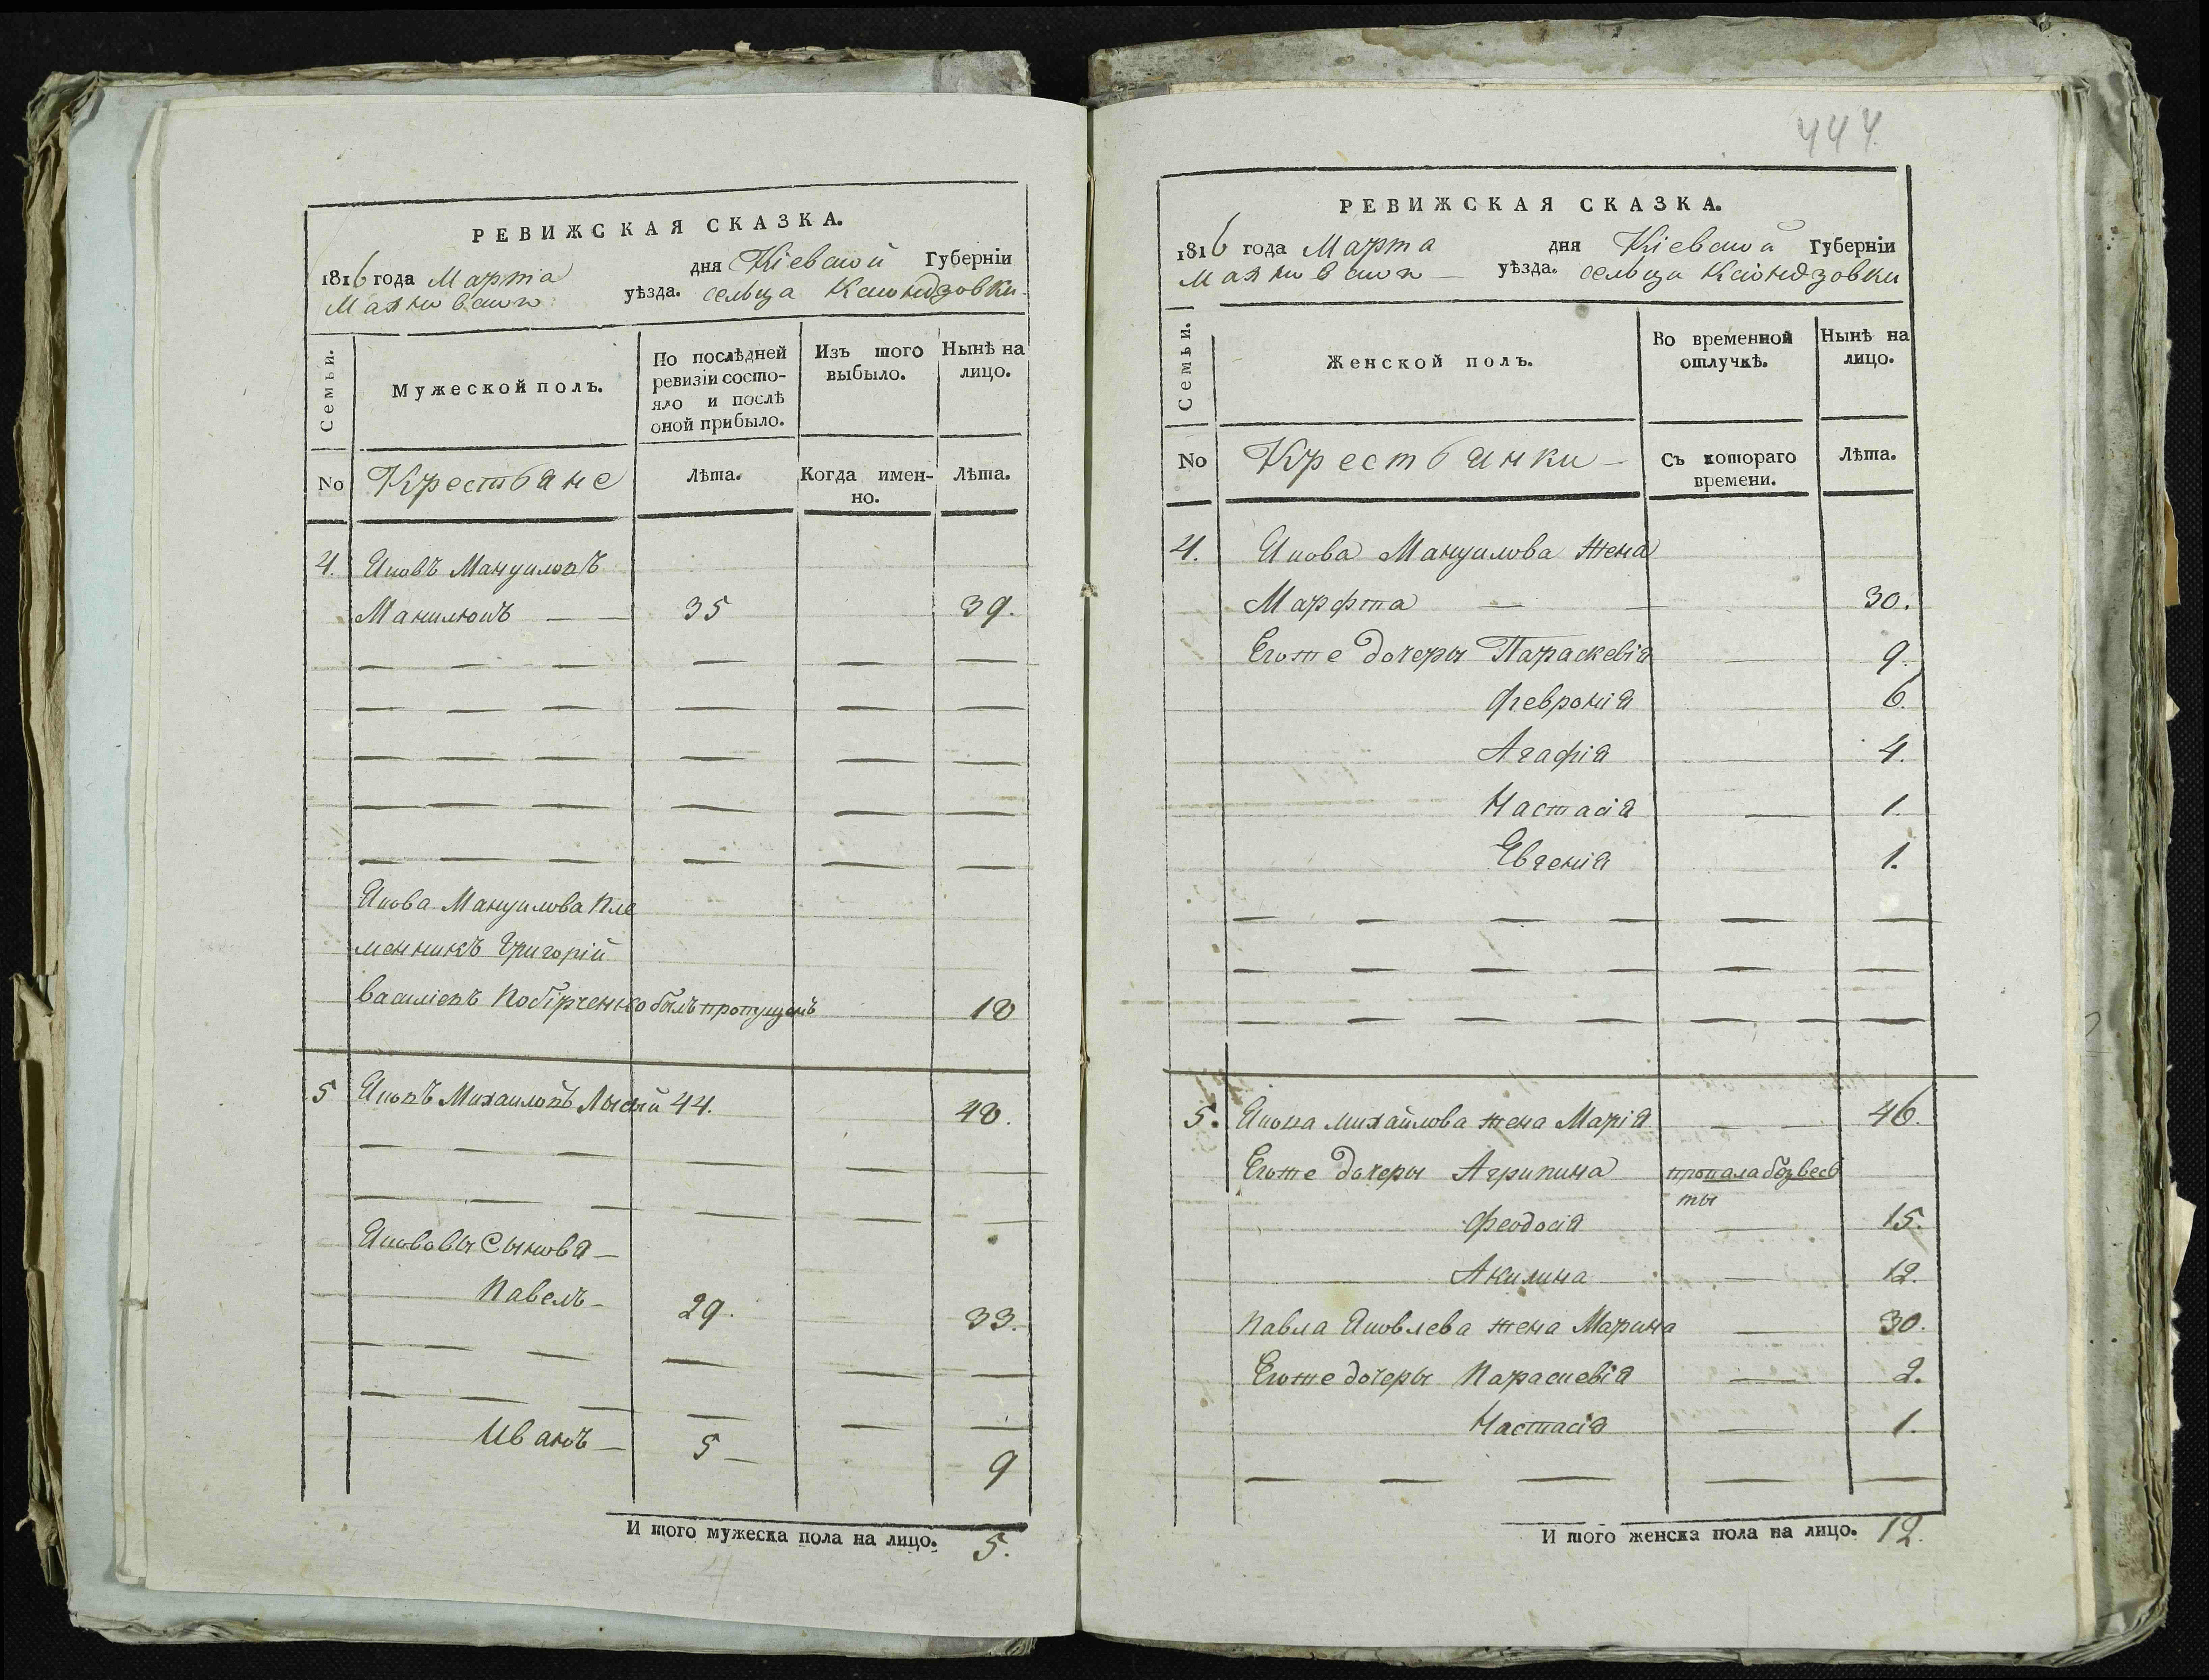 РЕВИЖСКАЯ СКАЗКА.
1816 года Марта дня Кіевской Губерніи
уѣзда. сельца
Семьи.
Мужеской полъ.
По послѣдней ревизіи состояло и послѣ оной прибыло.
Изъ того выбыло.
Нынѣ на лицо.
No Крестьяне Лѣта. Когда именно. Лѣта.
4. Яковъ Мануиловъ
35 39.
Якова Мануилова пле
менникъ Григорій
василіевъ былъ пропущенъ 18
5 Яковъ Михаиловъ Лысый 44. 48.
Якововы Сыновя
Павелъ 29. 33.
Иванъ 5 9
И того мужеска пола на лицо. 5.
4
444.
РЕВИЖСКАЯ СКАЗКА.
1816 года Марта дня Кіевской Губерніи
уѣзда. сельца
Семьи.
Женской полъ.
Во временной отлучкѣ.
Нынѣ на лицо.
No Крестьянки Съ котораго времени. Лѣта.
4. Якова Мануилова жена
Марфта 30.
Егоже дочеры Параскевія 9.
Февронія 6.
Агафія 4.
Настасія 1.
Евгенія 1.
5. Якова михайлова жена Марія 46.
Егоже дочеры Агрипина пропала безвес
ты
Феодосія 15.
Акилина 12.
Павла Яковлева жена Марина 30.
Егоже дочеры Параскевія 2.
Настасія 1.
И того женска пола на лицо. 12.